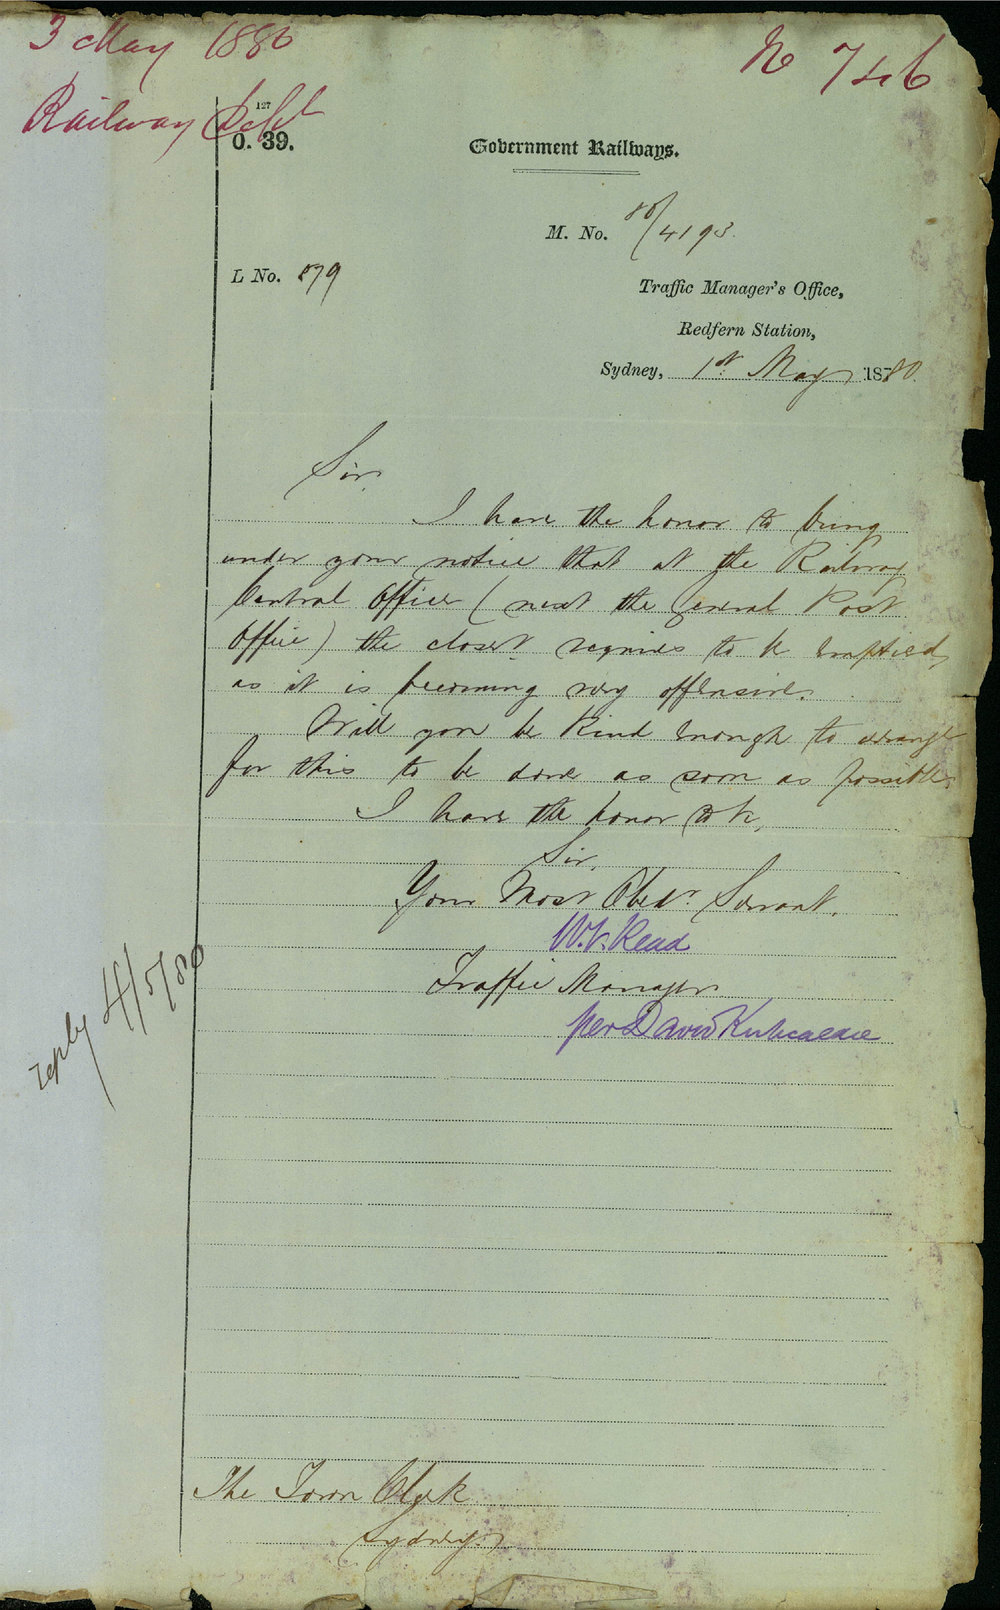 3 May 1880
No 746
Railway Dept
127
O. 39.
Government Railways.
M. No. 80/4193
L No. 879
Traffic Manager's Office,
Redfern Station,
Sydney, 1st May 1880.
Sir,
I have the honor to bring
under your notice that at the Railway
Central Office (next the General Post
Office) the closet requires to be emptied,
as it is becoming very offensive.
Will you be kind enough to arrange
for this to be done as soon as possible.
I have the honor to be,
Sir,
Your Most Obedt. Servant.
W.V. Read
Traffic Manager
per David Kirkcaldie
reply 4/5/80
The Town Clerk
Sydney.